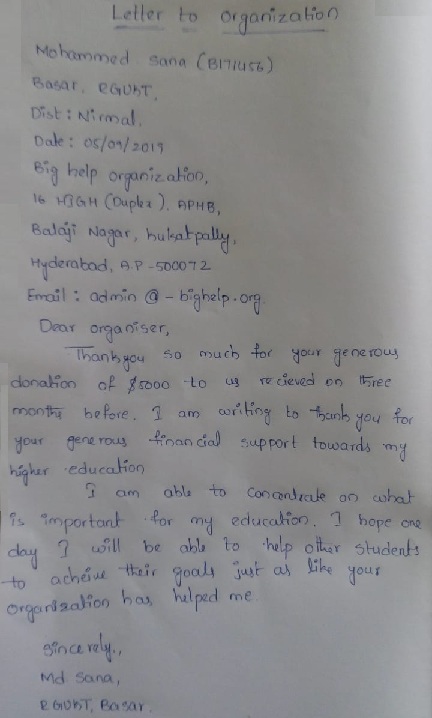 Letter to organization
Mohammed sana (B171456)
Basar, RGUKT,
Dist : Nirmal,
Date : 05/09/2019
Big help organization,
16 HIGH (Duplex), APHB,
Balaji Nagar, kukatpally,
Hyderabad, A.P - 500072
Email : admin @ - bighelp.org.
Dear organiser,
Thankyou so much for your generous
donation of $5000 to us recieved on three
months before. I am writing to thank you for
your generous financial support towards my
higher education
I am able to concentrate on what
is important for my education. I hope one
day I will be able to help other students
to acheive their goals just as like your
organization has helped me.
Sincerely.,
Md Sana,
RGUKT, Basar.